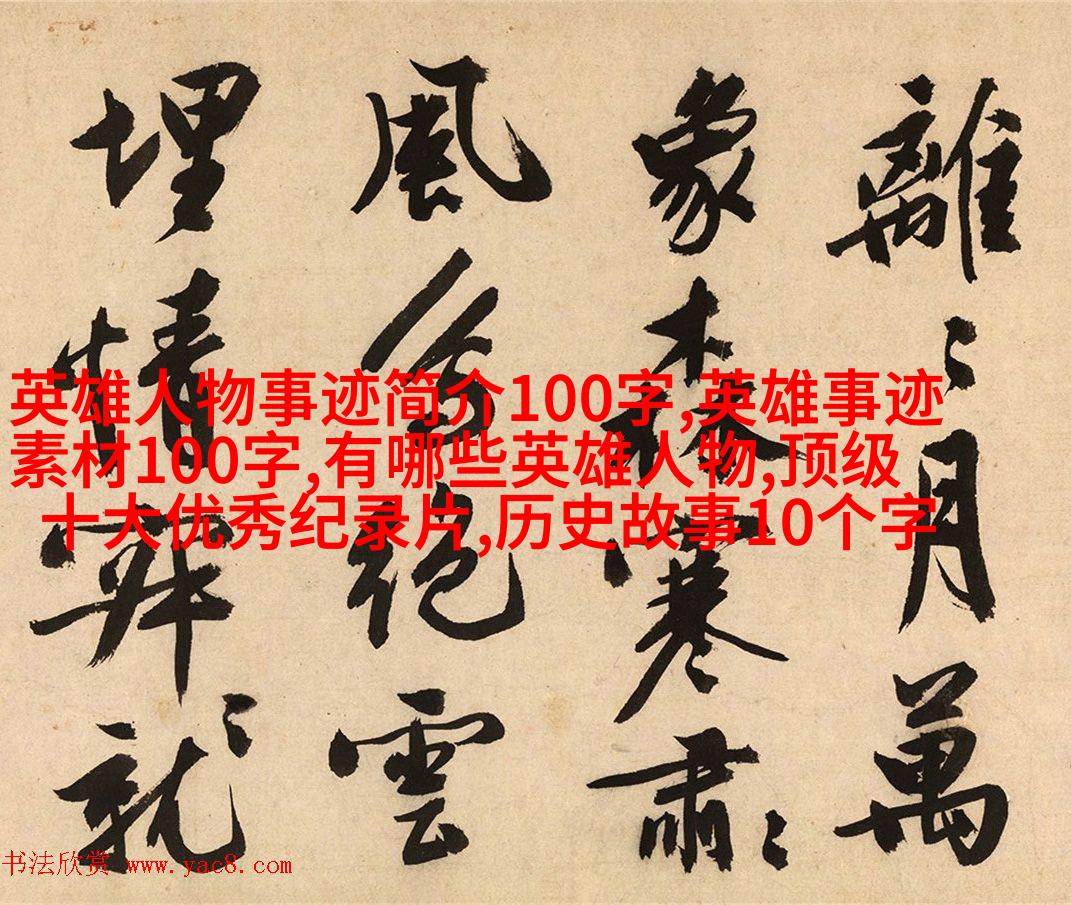 離〻月萬
象森寒肅〻
風絕雲
埋情就〻
英雄人物事迹简介100字,英雄事迹
素材100字,有哪些英雄人物,顶级
十大优秀纪录片,历史故事10个字
书法欣赏 www.yac8.com